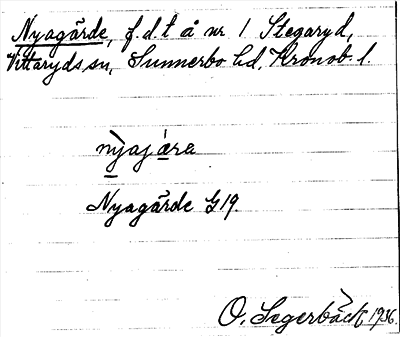 Nyagärde, f.d.t å nr 1 Stegaryd,
Vittaryds sn, Sunnerbo hd, Kronob. l.
nỳajæ̀ra
Nyagärde G 19.
O. Segerbäck, 1936.